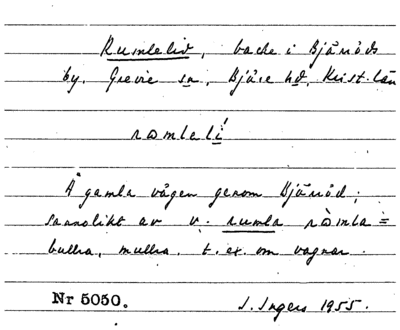 Rumlelid, backe i Bjäröds
by. Grevie sn, Bjäre hd, Krist. län
ramlelí
Å gamla vägen genom Bjäröd;
sannolikt av v. rumla ràmla =
bullra, mullra, t. ex. om vagnar.
Nr 5050. I. Ingers 1955.